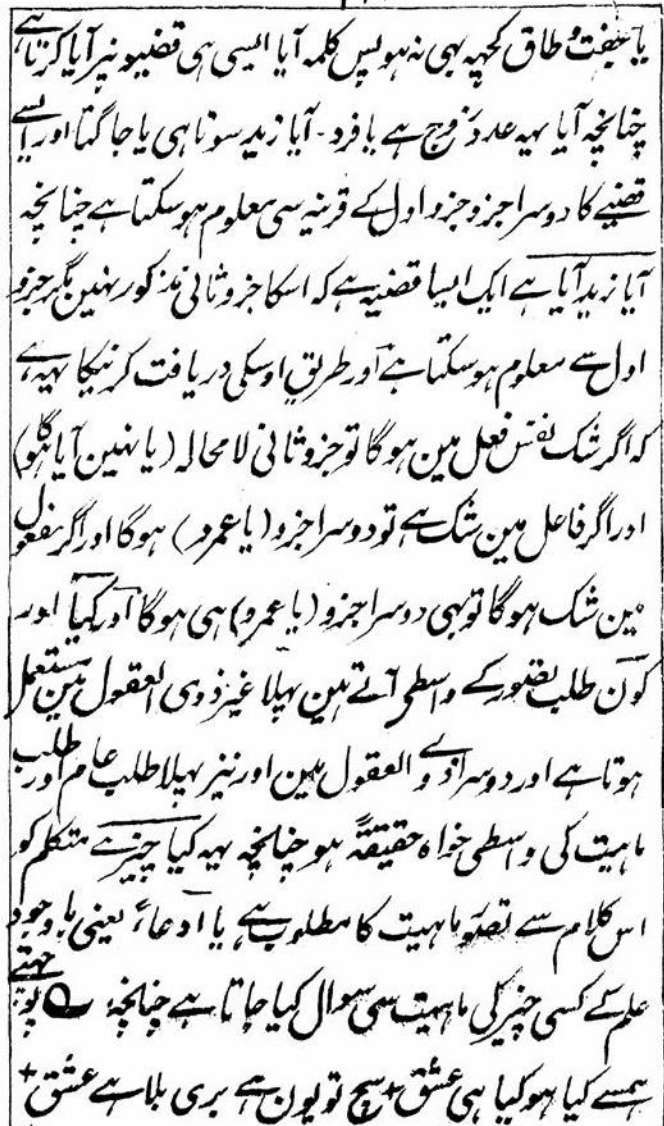 یا جفت و طاق کچہہ بہی نہ ہو پس کلمہ آیا ایسی ہی قضیو نپر آیا کرتا ہے
چنانچہ آیا یہہ عدد زوج ہے یا فرد - آیا زید سوتا ہی یا جاگتا اور ایسے
قضیے کا دوسرا جزو جزو اول کے قرینہ سی معلوم ہوسکتا ہے چنانچہ
آیا زید آیا ہے ایک ایسا قضیہ ہے کہ اسکا جزو ثانی مذکور نہین مگر جزو
اول سے معلوم ہوسکتا ہے اور طریق اوسکی دریافت کرنیکا یہہ ہے
کہ اگر شک نفس فعل مین ہوگا تو جزو ثانی لا محالہ (یا نہین آیا ہوگا)
اور اگر فاعل مین شک ہے تو دوسرا جزو (یا عمرو) ہوگا اور اگر مفعول
مین شک ہوگا تو بہی دوسرا جزو (یا عمرو) ہی ہوگا اور کیا اور
کون طلب تصور کے واسطی آتے ہین پہلا غیر ذوی العقول مین مستعمل
ہوتا ہے اور دوسرا ذوے العقول مین اور نیز پہلا طلب عام اور طلب
ماہیت کی واسطی خواہ حقیقۃً ہو چنانچہ یہہ کیا چیز ہے متکلم کو
اس کلام سے تصور ماہیت کا مطلوب ہے یا ادعاءً یعنی باوجود
علم کے کسی چیز کی ماہیت سی سوال کیا جاتا ہے چنانچہ پوچہتے
ہمسے کیا ہو کیا ہی عشق + سچ تو یون ہے بری بلا ہے عشق +